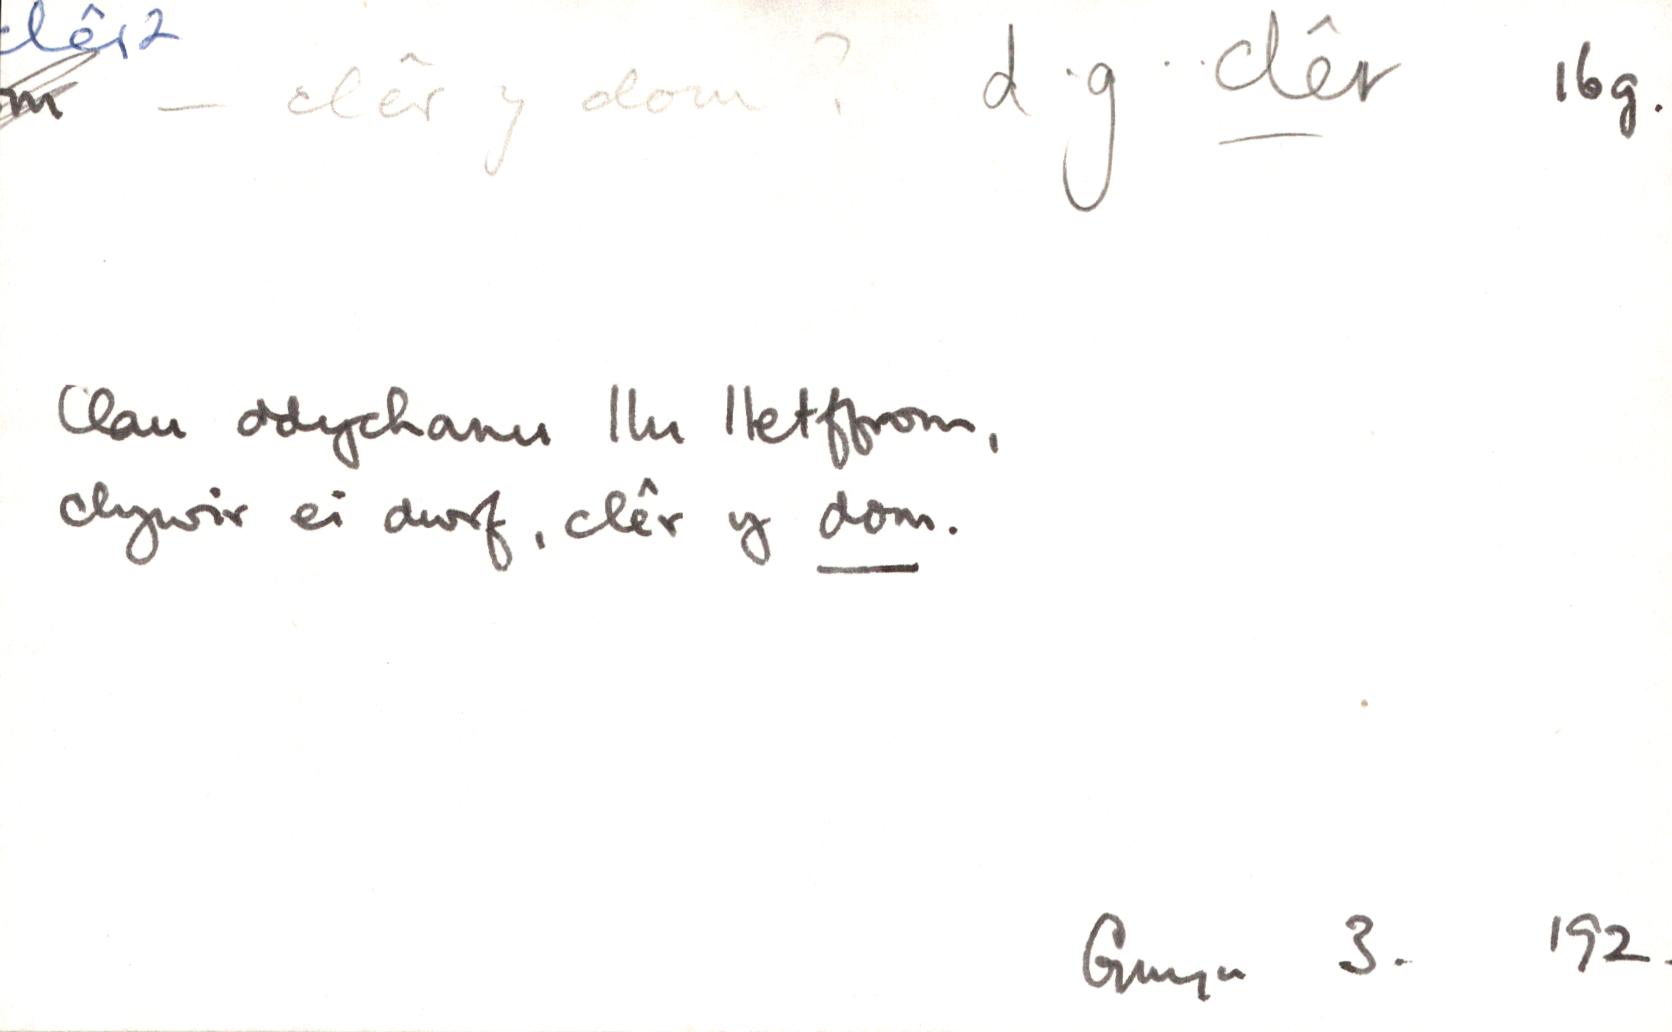 clêr2
om — clêr y dom ? d.g. clêr 16g.
Clau ddychanu llu lletffrom,
chywir ei dwrf, clêr y dom.
3. 192.